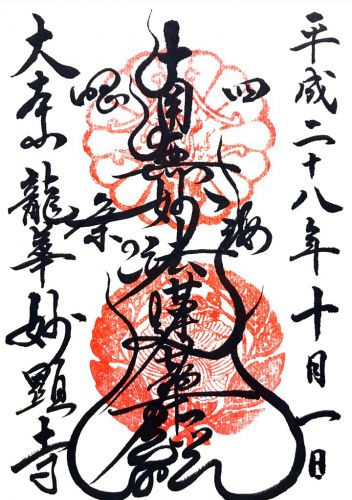 平成二十八年十月一日
四海
南無妙法蓮華経
唱導
大本山龍華妙顯寺